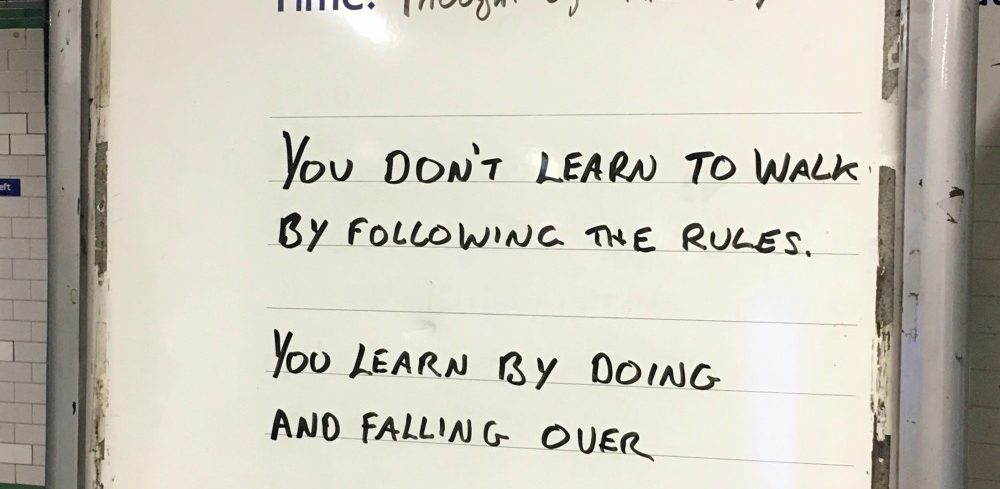 Time: Thought of the Day
YOU DON'T LEARN TO WALK
BY FOLLOWING THE RULES.
YOU LEARN BY DOING
AND FALLING OVER
eft